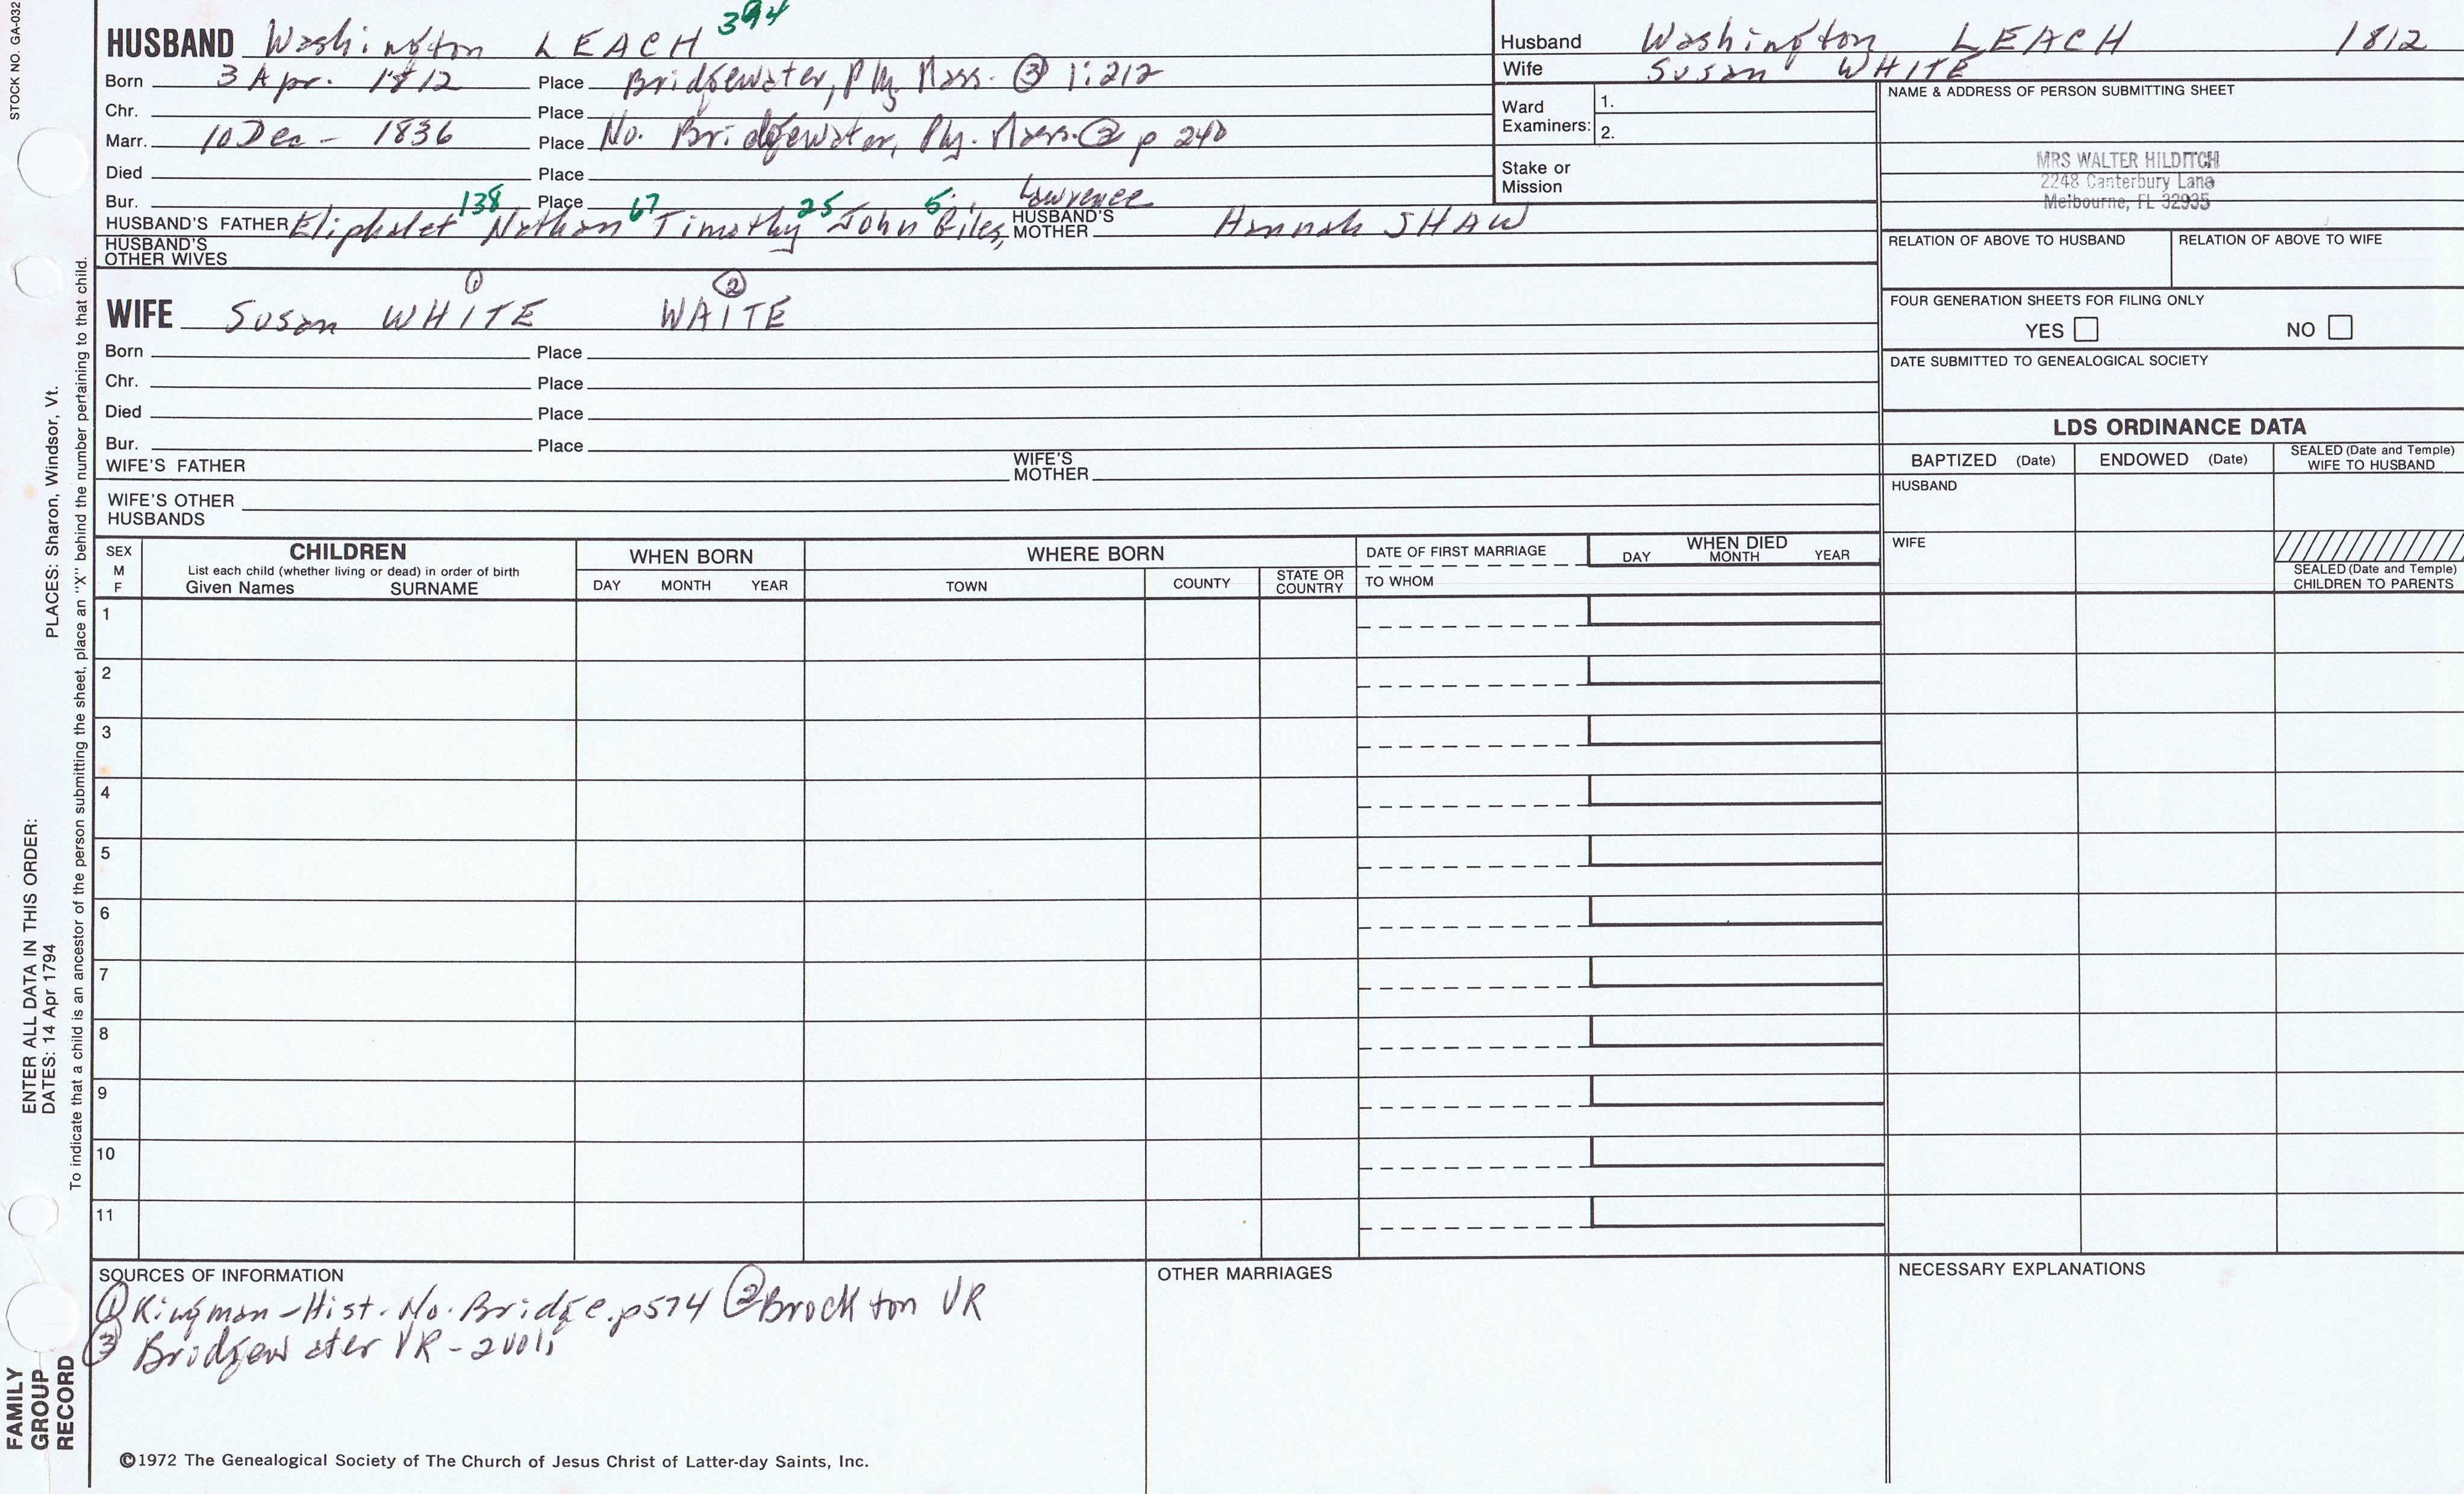 STOCK NO. GA-032
HUSBAND Washington LEACH 394
Born 3 Apr. 1812 Place Bridgewater, Ply. Mass. ③ 1:212
Chr. Place
Marr. 10 Dec - 1836 Place No. Bridgewater, Ply. Mass. ② p 240
Died Place
Bur. Place
HUSBAND'S FATHER Eliphalet 138 Nathan 67 Timothy 25 John 5 Giles, Lawrence HUSBAND'S MOTHER Hannah SHAW
HUSBAND'S OTHER WIVES
Husband Washington LEACH 1812
Wife Susan WHITE
Ward Examiners: 1.
2.
Stake or Mission
NAME & ADDRESS OF PERSON SUBMITTING SHEET
MRS WALTER HILDITCH
2248 Canterbury Lane
Melbourne, FL 32935
RELATION OF ABOVE TO HUSBAND RELATION OF ABOVE TO WIFE
FOUR GENERATION SHEETS FOR FILING ONLY
YES NO
DATE SUBMITTED TO GENEALOGICAL SOCIETY
WIFE Susan WHITE ① WAITE ②
Born Place
Chr. Place
Died Place
Bur. Place
WIFE'S FATHER WIFE'S MOTHER
WIFE'S OTHER HUSBANDS
LDS ORDINANCE DATA
BAPTIZED (Date) ENDOWED (Date) SEALED (Date and Temple) WIFE TO HUSBAND
HUSBAND
WIFE
SEALED (Date and Temple) CHILDREN TO PARENTS
SEX M F
CHILDREN
List each child (whether living or dead) in order of birth
Given Names SURNAME
WHEN BORN
DAY MONTH YEAR
WHERE BORN
TOWN COUNTY STATE OR COUNTRY
DATE OF FIRST MARRIAGE
TO WHOM
WHEN DIED
DAY MONTH YEAR
1
2
3
4
5
6
7
8
9
10
11
SOURCES OF INFORMATION
① Kingman - Hist. No. Bridge. p574 ② Brockton VR
③ Bridgewater VR - 2 vols
OTHER MARRIAGES
NECESSARY EXPLANATIONS
©1972 The Genealogical Society of The Church of Jesus Christ of Latter-day Saints, Inc.
FAMILY GROUP RECORD
ENTER ALL DATA IN THIS ORDER:
DATES: 14 Apr 1794
PLACES: Sharon, Windsor, Vt.
To indicate that a child is an ancestor of the person submitting the sheet, place an "X" behind the number pertaining to that child.